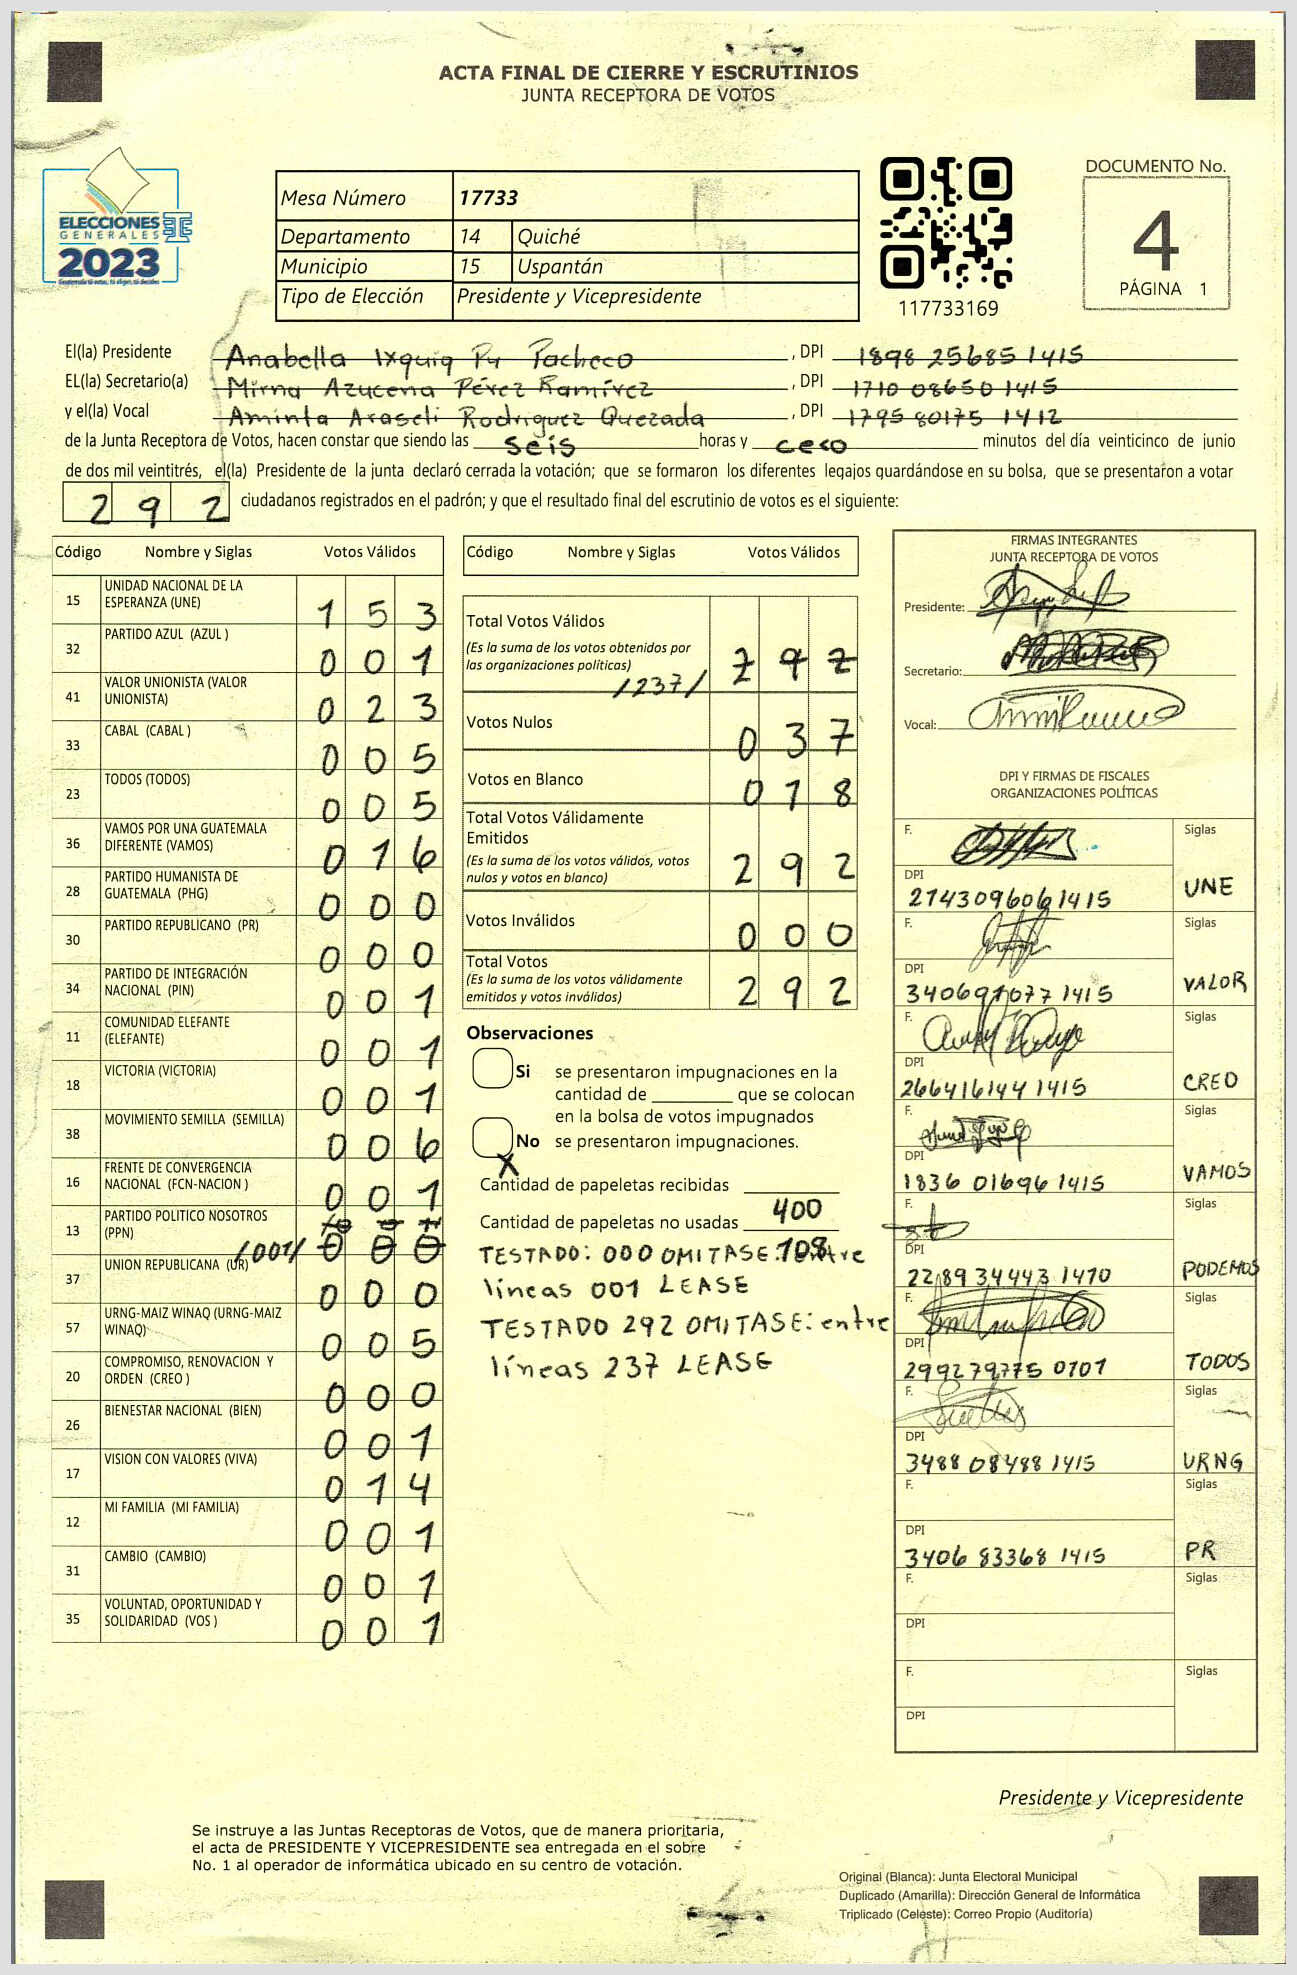 ACTA FINAL DE CIERRE Y ESCRUTINIOS
JUNTA RECEPTORA DE VOTOS
ELECCIONES
GENERALES
2023
Mesa Número 17733
Departamento 14 Quiché
Municipio 15 Uspantán
Tipo de Elección Presidente y Vicepresidente
117733169
DOCUMENTO No.
4
PÁGINA 1
El(la) Presidente Anabella Ixquiq Pu Pacheco, DPI 1898 25685 1415
EL(la) Secretario(a) Mirna Azucena Pérez Ramírez, DPI 1710 08650 1415
y el(la) Vocal Aminta Araseli Rodriguez Quezada, DPI 1795 80175 1412
de la Junta Receptora de Votos, hacen constar que siendo las seis horas y cero minutos del día veinticinco de junio
de dos mil veintitrés, el(la) Presidente de la junta declaró cerrada la votación; que se formaron los diferentes legajos guardándose en su bolsa, que se presentaron a votar
292 ciudadanos registrados en el padrón; y que el resultado final del escrutinio de votos es el siguiente:
Código Nombre y Siglas Votos Válidos
15 UNIDAD NACIONAL DE LA ESPERANZA (UNE) 153
32 PARTIDO AZUL (AZUL ) 001
41 VALOR UNIONISTA (VALOR UNIONISTA) 023
33 CABAL (CABAL ) 005
23 TODOS (TODOS) 005
36 VAMOS POR UNA GUATEMALA DIFERENTE (VAMOS) 016
28 PARTIDO HUMANISTA DE GUATEMALA (PHG) 000
30 PARTIDO REPUBLICANO (PR) 000
34 PARTIDO DE INTEGRACIÓN NACIONAL (PIN) 001
11 COMUNIDAD ELEFANTE (ELEFANTE) 001
18 VICTORIA (VICTORIA) 001
38 MOVIMIENTO SEMILLA (SEMILLA) 006
16 FRENTE DE CONVERGENCIA NACIONAL (FCN-NACION ) 001
13 PARTIDO POLITICO NOSOTROS (PPN) /001/ 000
37 UNION REPUBLICANA (UR) 000
57 URNG-MAIZ WINAQ (URNG-MAIZ WINAQ) 005
20 COMPROMISO, RENOVACION Y ORDEN (CREO ) 000
26 BIENESTAR NACIONAL (BIEN) 001
17 VISION CON VALORES (VIVA) 014
12 MI FAMILIA (MI FAMILIA) 001
31 CAMBIO (CAMBIO) 001
35 VOLUNTAD, OPORTUNIDAD Y SOLIDARIDAD (VOS ) 001
Código Nombre y Siglas Votos Válidos
Total Votos Válidos
(Es la suma de los votos obtenidos por
las organizaciones políticas) 292
/237/
Votos Nulos 037
Votos en Blanco 018
Total Votos Válidamente
Emitidos
(Es la suma de los votos válidos, votos
nulos y votos en blanco) 292
Votos Inválidos 000
Total Votos
(Es la suma de los votos válidamente
emitidos y votos inválidos) 292
Observaciones
Si se presentaron impugnaciones en la
cantidad de ________ que se colocan
en la bolsa de votos impugnados
No se presentaron impugnaciones.
X
Cantidad de papeletas recibidas 400
Cantidad de papeletas no usadas 108
TESTADO: 000 OMITASE: entre
líneas 001 LEASE
TESTADO 292 OMITASE: entre
líneas 237 LEASE
FIRMAS INTEGRANTES
JUNTA RECEPTORA DE VOTOS
Presidente:
Secretario:
Vocal:
DPI Y FIRMAS DE FISCALES
ORGANIZACIONES POLÍTICAS
F. Siglas
DPI
2743096061415 UNE
F. Siglas
DPI
340691077 1415 VALOR
F. Siglas
DPI
266416144 1415 CREO
F. Siglas
DPI
1836 01696 1415 VAMOS
F. Siglas
DPI
2289 34443 1410 PODEMOS
F. Siglas
DPI
299279775 0101 TODOS
F. Siglas
DPI
3488 08488 1415 URNG
F. Siglas
DPI
3406 83368 1415 PR
F. Siglas
DPI
F. Siglas
DPI
Presidente y Vicepresidente
Se instruye a las Juntas Receptoras de Votos, que de manera prioritaria,
el acta de PRESIDENTE Y VICEPRESIDENTE sea entregada en el sobre
No. 1 al operador de informática ubicado en su centro de votación.
Original (Blanca): Junta Electoral Municipal
Duplicado (Amarilla): Dirección General de Informática
Triplicado (Celeste): Correo Propio (Auditoría)